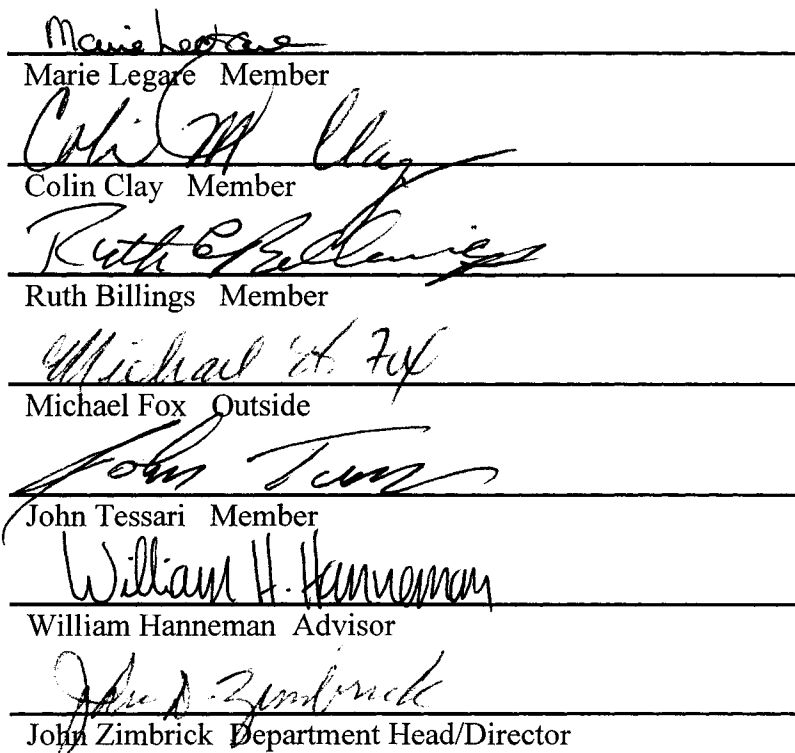 Marie Legare
Marie Legare Member
Colin M Clay
Colin Clay Member
Ruth E Billings
Ruth Billings Member
Michael H. Fox
Michael Fox Outside
John
John Tessari Member
William H. Hanneman
William Hanneman Advisor
John D. Zimbrick
John Zimbrick Department Head/Director